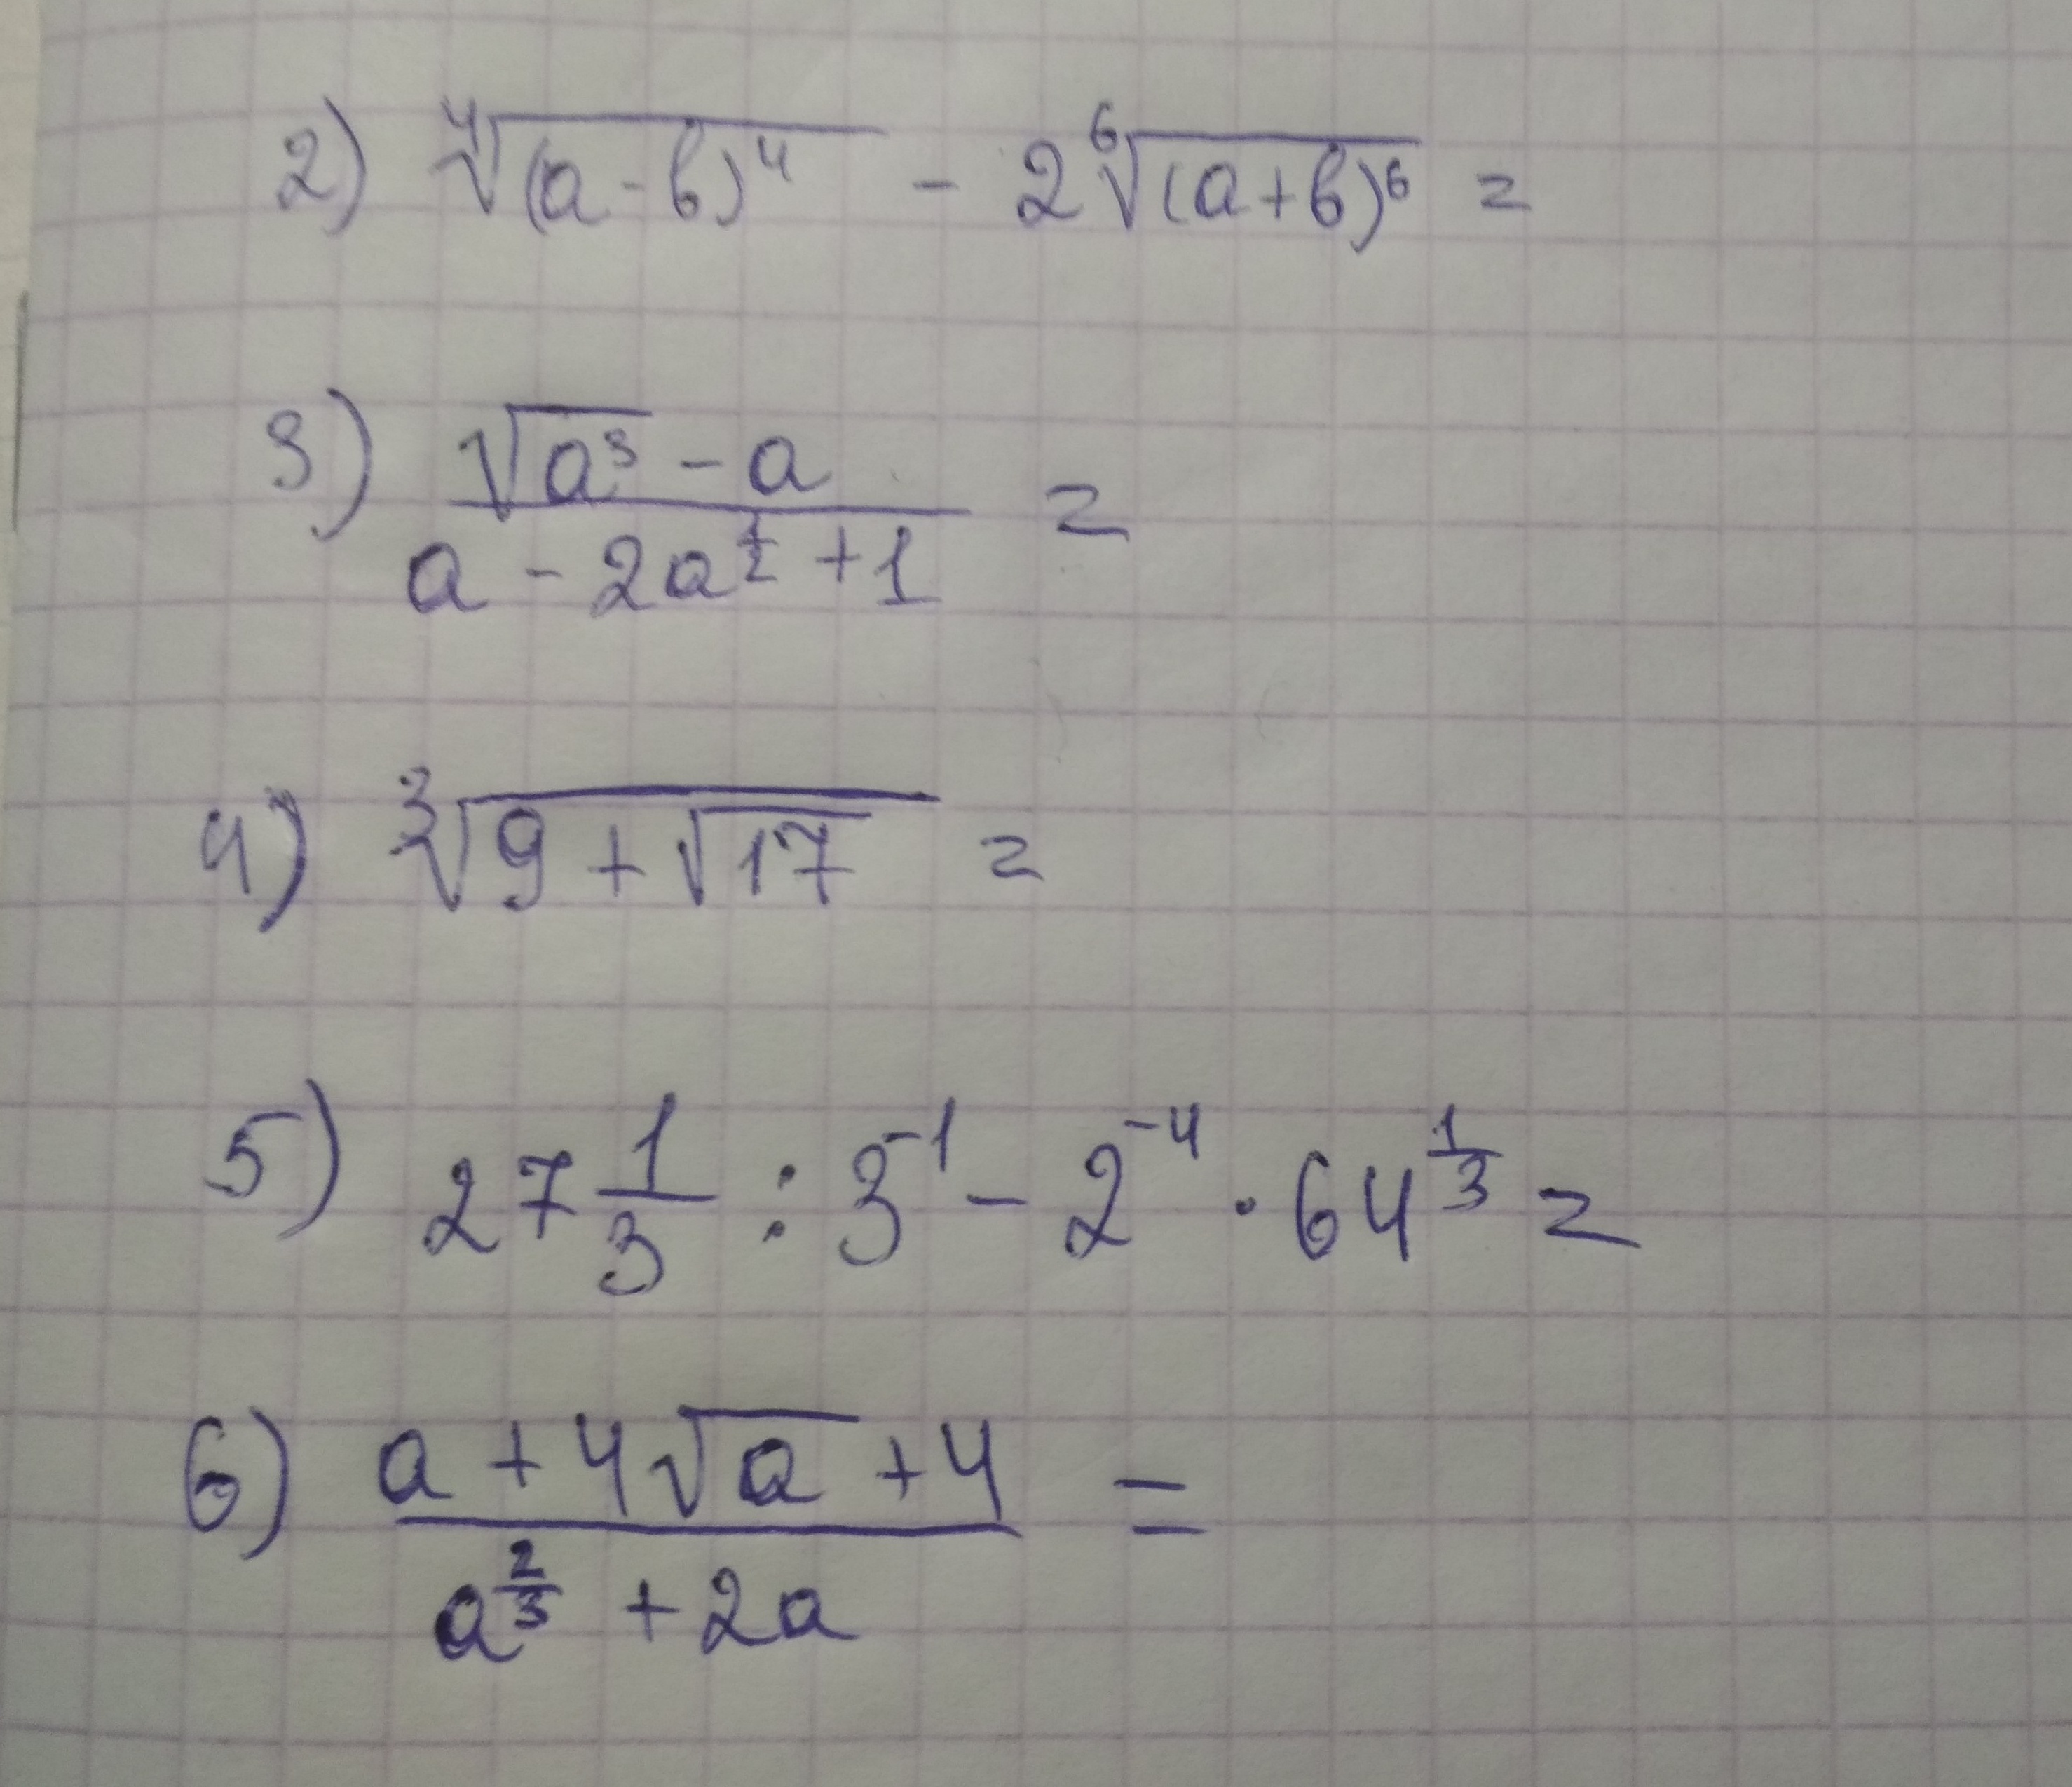 2) ⁴√(a-b)⁴ - 2 ⁶√(a+b)⁶ =
3) (√a³ - a) / (a - 2a^(1/2) + 1) =
4) ³√(9 + √17) =
5) 27 1/3 : 3⁻¹ - 2⁻⁴ · 64^(1/3) =
6) (a + 4√a + 4) / (a^(2/3) + 2a) =